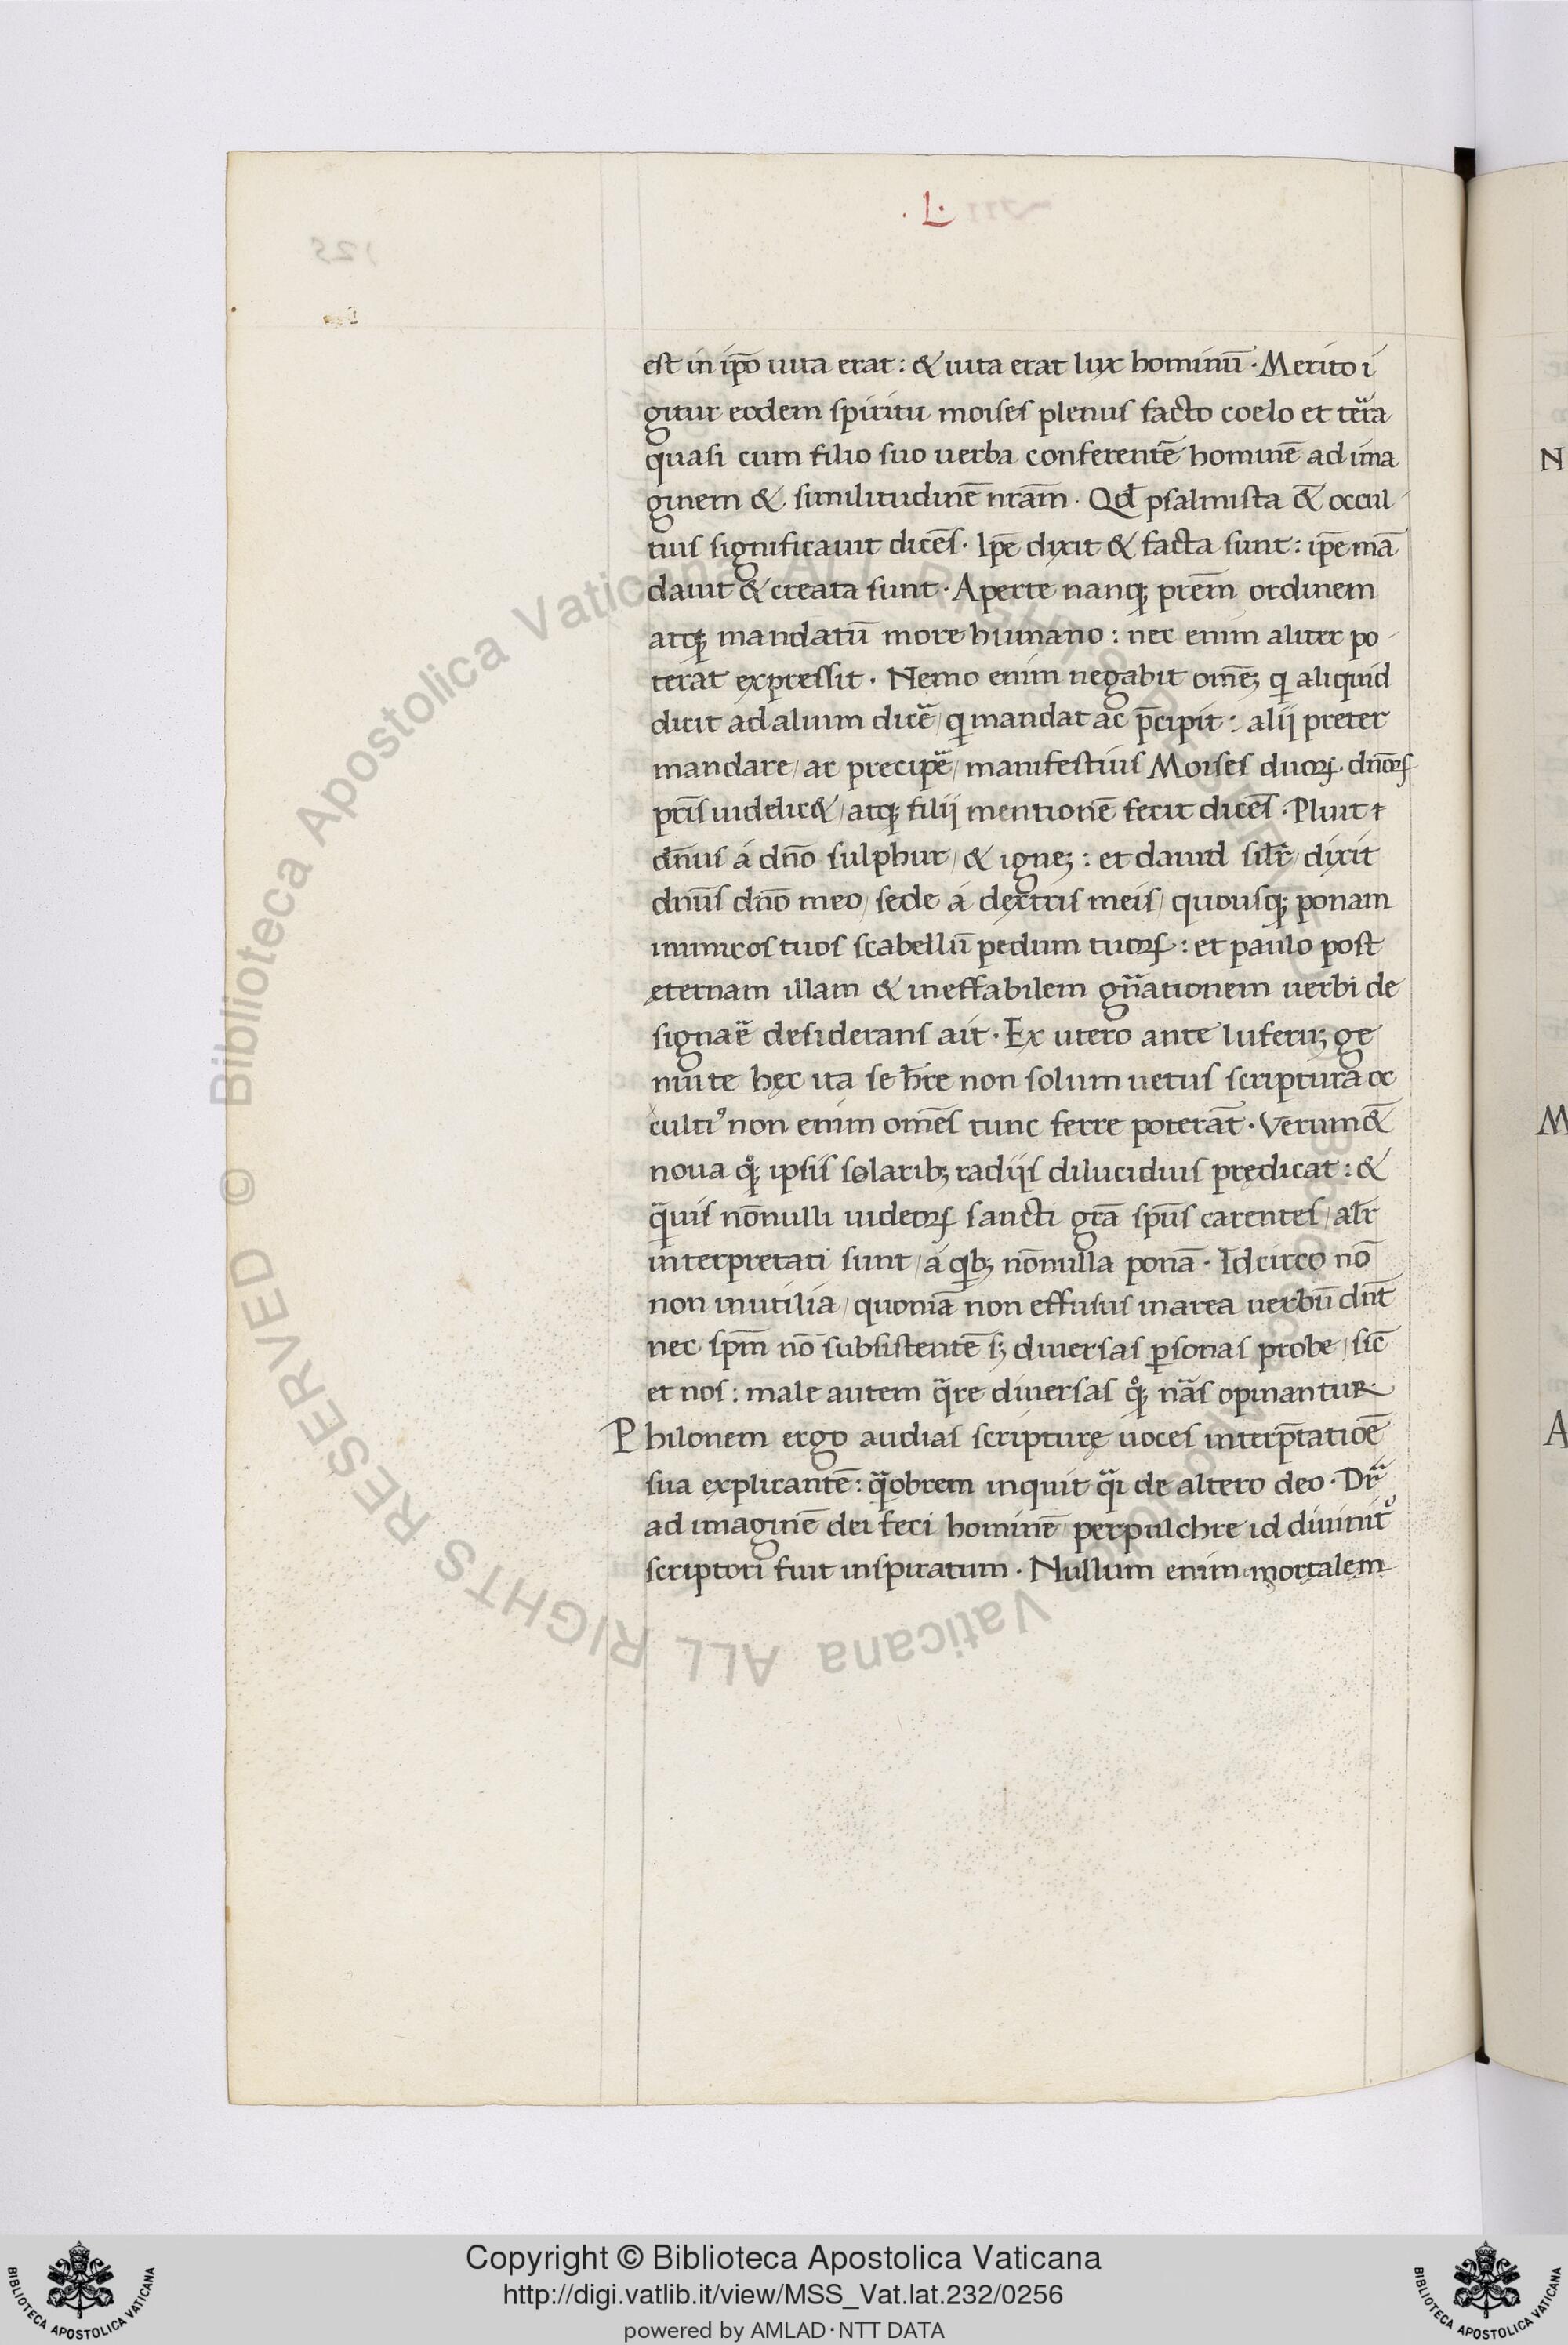 .L.
est in ip̄o uita erat: & uita erat lux hominū. Merito i
gitur eodem spiritu moises plenus facto coelo et terͣa
quasi cum filio suo uerba conferentē hominē ad ima
ginem & similitudinē nram̄. Qd̄ psalmista &̄ occul
tius significauit dicēs. Ip̄e dixit & facta sunt: ip̄e mā
dauit & creata sunt. Aperte nanq; prēm ordinem
atq; mandatū more humano: nec enim aliter po
terat expressit. Nemo enim negabit omēȝ q aliquid
dicit ad alium dicē / q mandat ac p̄cipit: alij preter
mandare / ac precipē / manifestius Moises duoꝝ. dn̄oꝝ
prīs uidelic& / atq; filij mentionē fecit dicēs. Pluit
dn̄us á dn̄o sulphur / & igneȝ: et dauid silr̄ / dixit
dnūs dn̄o meo / sede á dextris meis / quousq; ponam
inimicos tuos scabellū pedum tuoꝝ: et paulo post
ęternam illam & ineffabilem gn̄ationem uerbi de
signaē desiderans ait. Ex utero ante luferuȝ ge
nui te hęc ita se hr̄e non solum uetus scriptura oc
culti᾽ non enim omēs tunc ferre poterāt. Verum &̄
noua qͦȝ ipsis solaribȝ radijs dilucidius prędicat: &
qͣuis nōnulli uideoꝝ sancti grā spūs carentes / alr̄
interpretati sunt / á qbȝ nōnulla ponā. Idcirco nō
non inutilia / quoniā non effusus in area uerbū dn̄t
nec spm̄ nō subsistentē sȝ diuersas ꝑsonas probe / sic̄
et nos: male autem qͣre diuersas qͦȝ nās opinantur
Philonem ergo audias scripturę uoces interp̄tatioē
sua explicantē: qͣobrem inquit qͣi de altero deo. Drͣ
ad imaginē dei feci hominē perpulchre id diuinitͦ
scriptori fuit inspiratum. Nullum enim mortalem
N
M
A
© Biblioteca Apostolica Vaticana ALL RIGHTS RESERVED
© Biblioteca Apostolica Vaticana ALL RIGHTS RESERVED
Copyright © Biblioteca Apostolica Vaticana
http://digi.vatlib.it/view/MSS_Vat.lat.232/0256
powered by AMLAD·NTT DATA
BIBLIOTECA APOSTOLICA VATICANA
BIBLIOTECA APOSTOLICA VATICANA